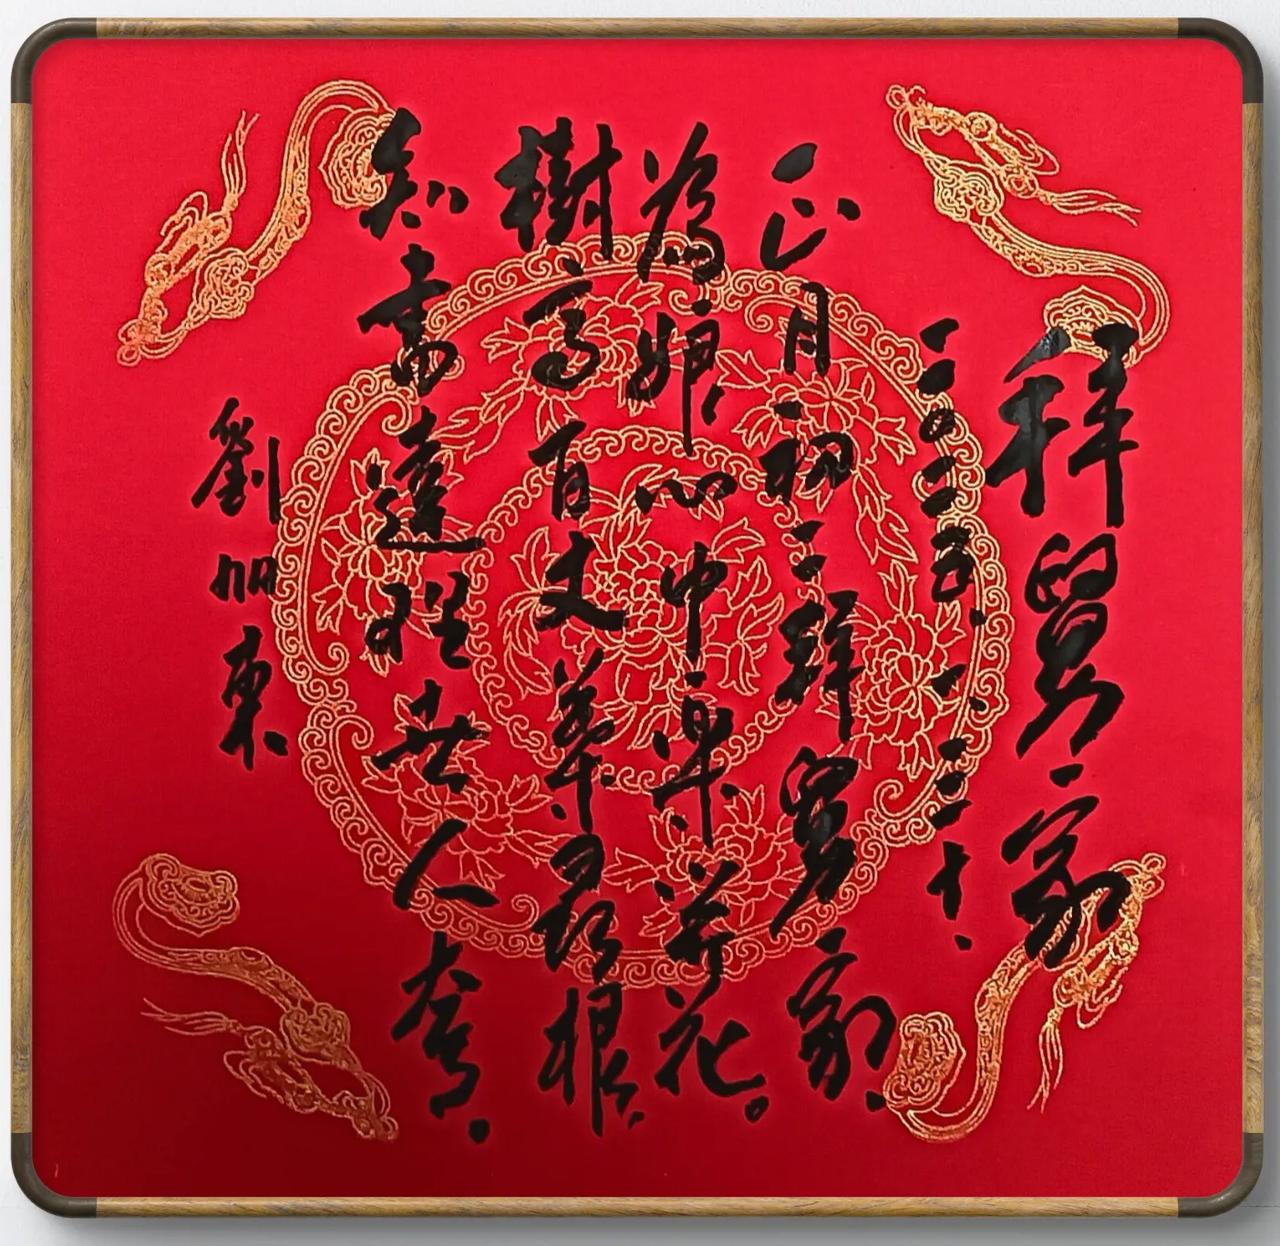 拜舅家
二〇二五.一.三十.
正月初二拜舅家,
為娘心中樂開花。
樹高百丈葉尋根,
知書達理世人夸.
劉旭東